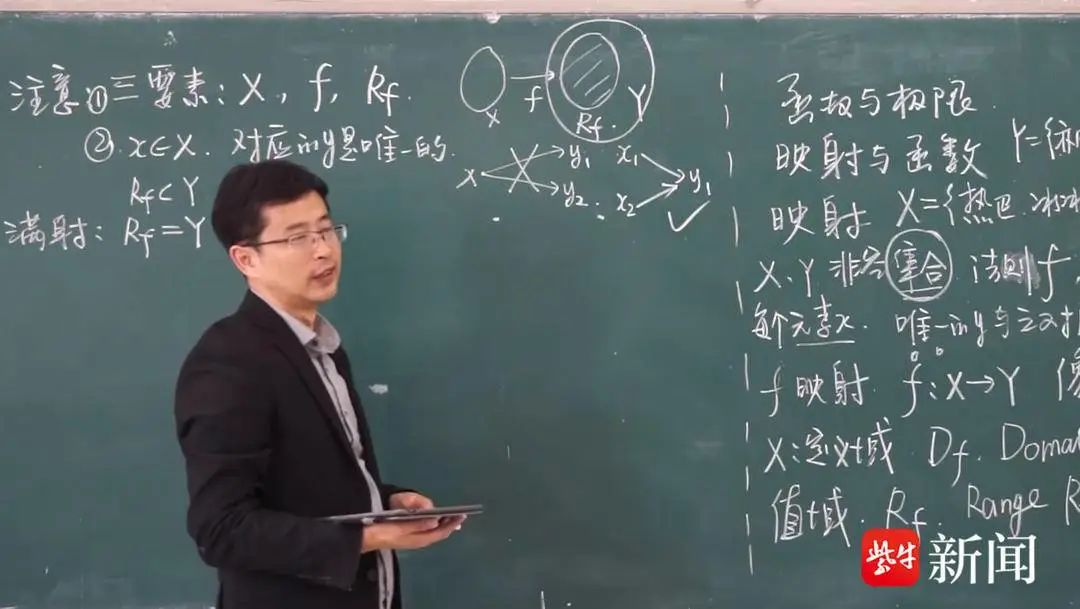 注意①三要素: X, f, R_f.
②. x∈X. 对应的y是唯一的.
R_f⊂Y
满射: R_f=Y
X f R_f Y
x y₁ y₂
x₁ x₂ y₁ ✓
函数与极限.
映射与函数 Y={
映射 X={热巴.冰冰
X、Y 非空集合 法则f,
每个元素x. 唯一的y与之对
f映射. f:X→Y 像
X:定义域. D_f. Doma
值域. R_f. Range R
紫牛 新闻